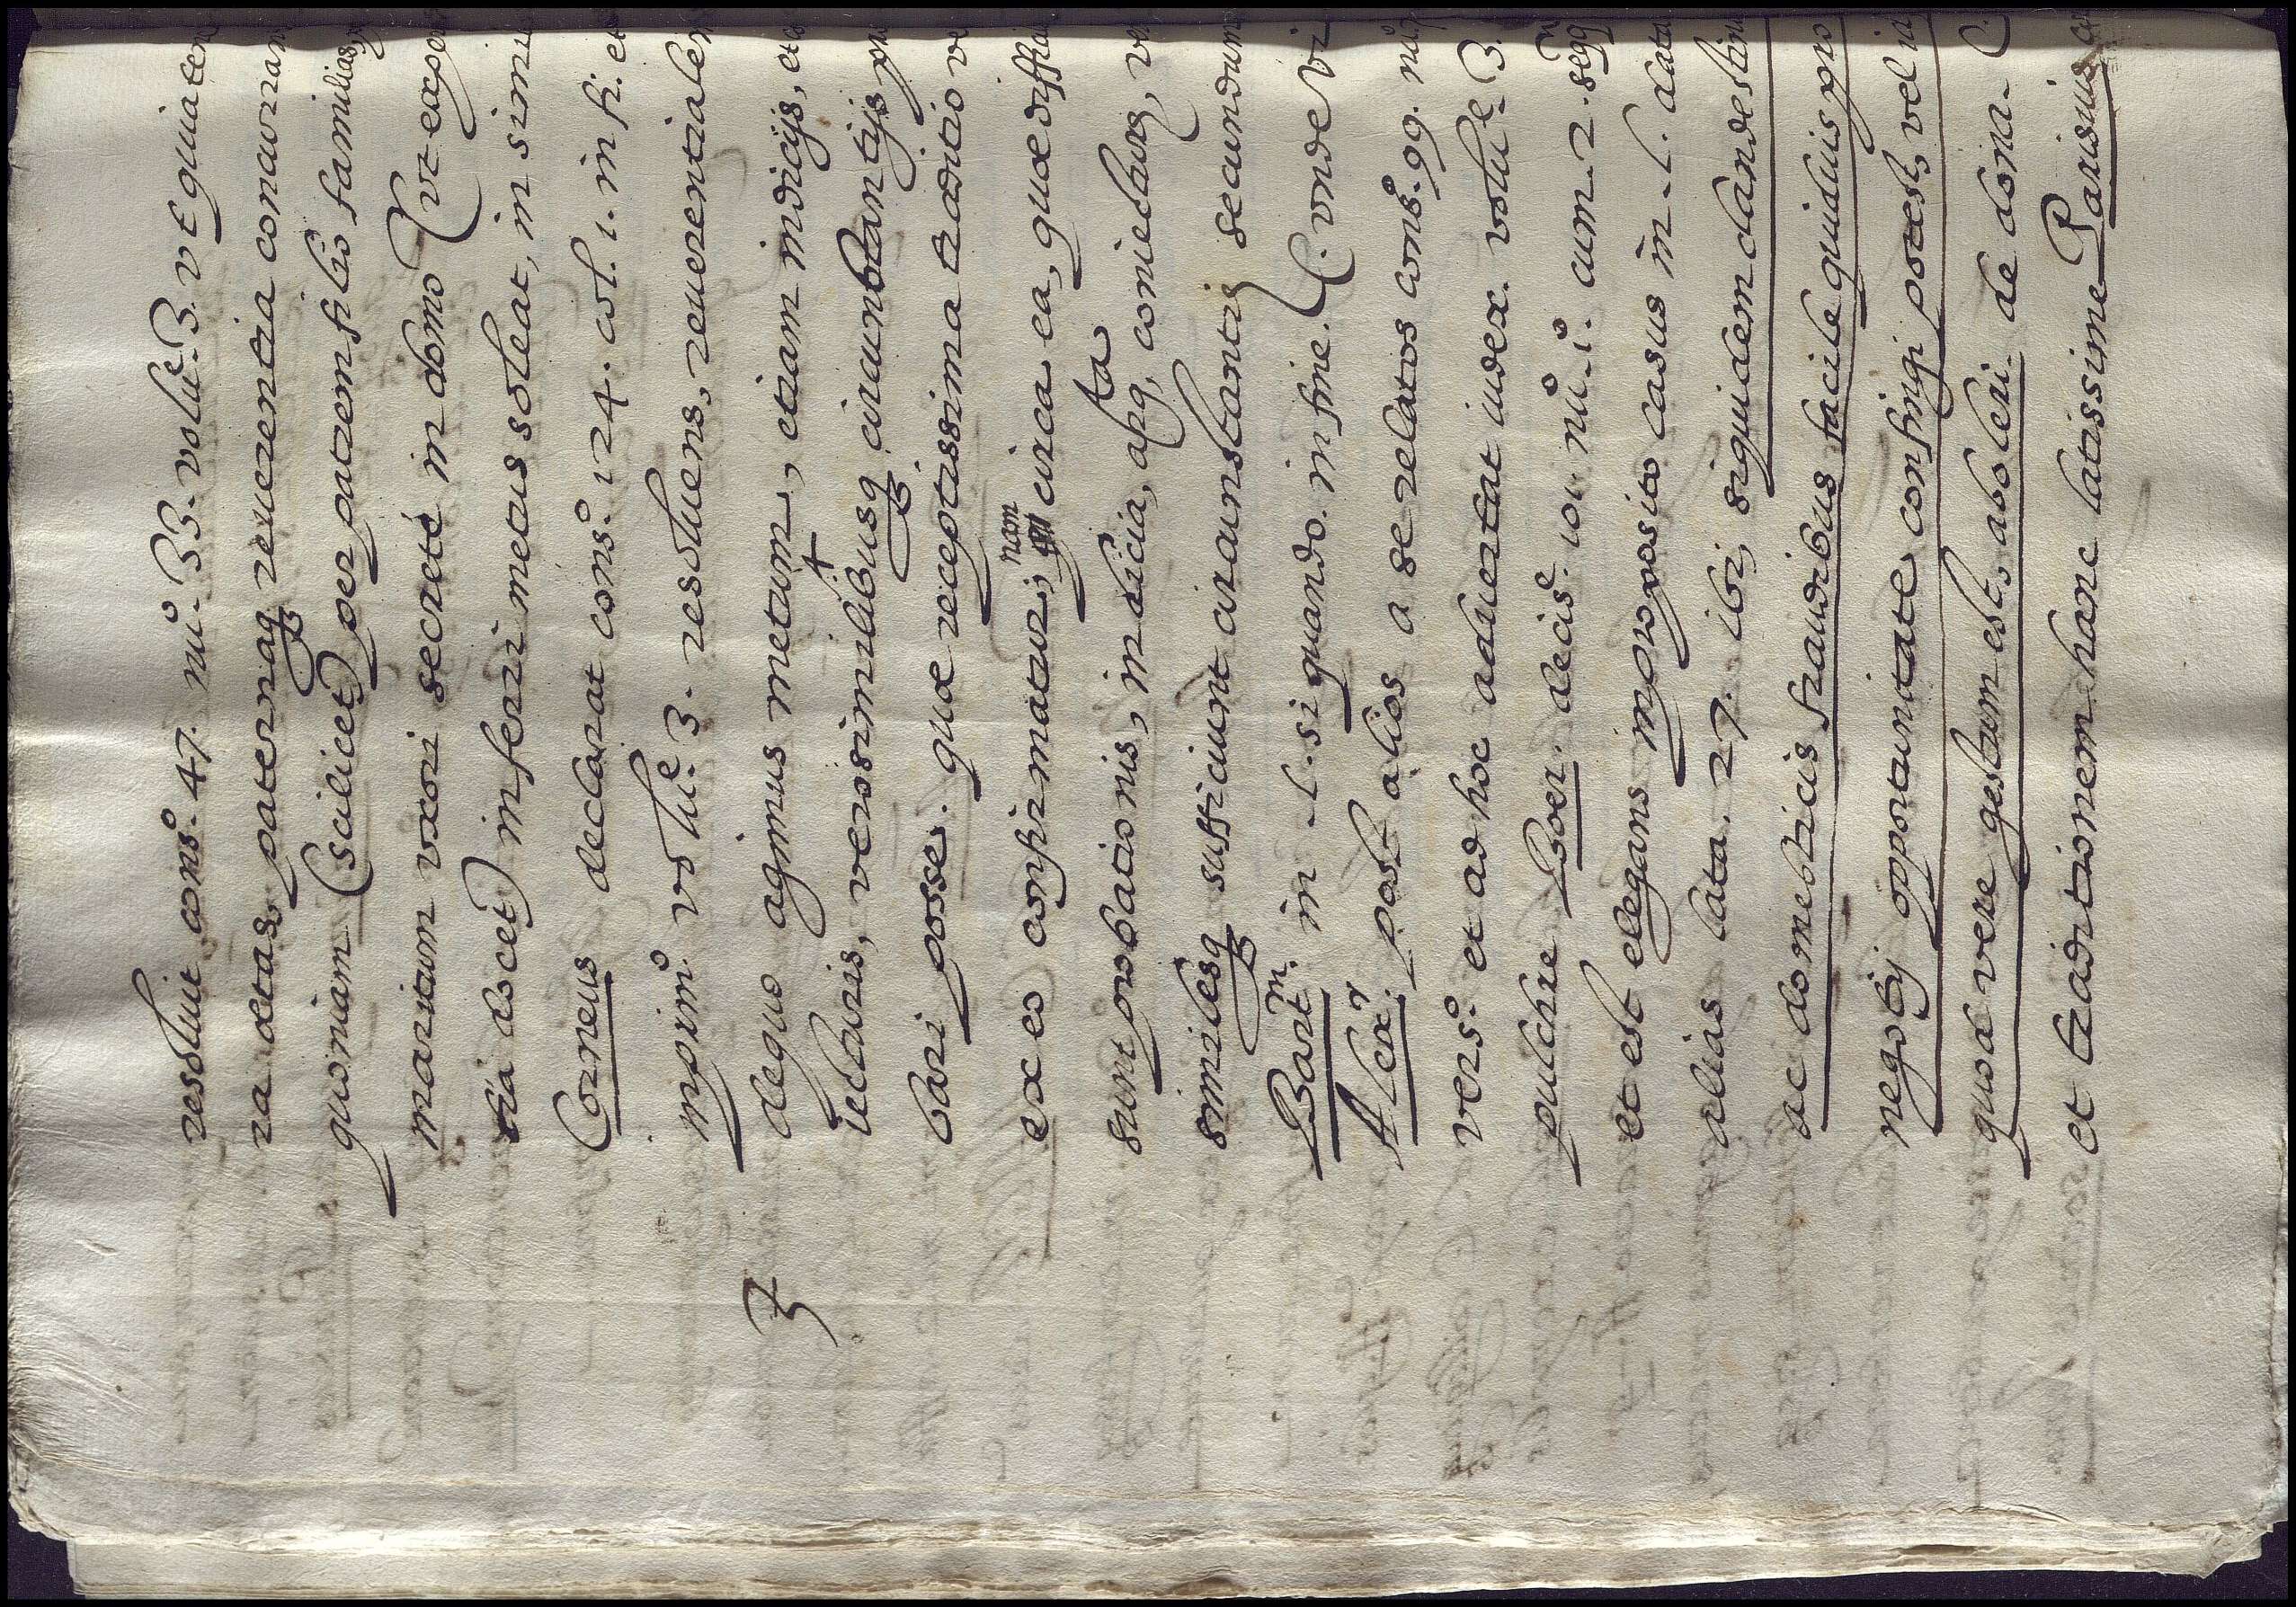 resoluit cons.º 47. nu.º 33. volu.e 3. vt quia cene
ra ætas, paternaq reuerentia concurran
quoniam (scilicet) per patrem filio familias
maritum vxori secrete in domo (vt expo
docet) inferri metus soleat, in simi
Corneus declarat cons.º 124. col. 1. in fi. et
in prim.º volu.e 3. resoluens, reuerentialem
deque agimus metum, etiam indicijs, et
iecturis, verosimilibusq circunstantijs
bari posse. quæ receptissima traditio
ex eo confirmatur; nam circa ea, quæ diffi
sunt probationis, indicia, atq, coniecturæ,
similesq sufficiunt circunstantiæ secundum
Bart.m in l. si quando. in fine. C. vnde vi
Alex.r post alios a se relatos cons.º 99. nu.º
vers.º et ad hoc aduertat iudex. volu.e 3.
pulchre Boer. decis.e 101. nu.º 1. cum 2. seqq
et est elegans in proposito casus in l. data
alias lata. 27. ibi, siquidem clandestinis
ac domesticis fraudibus facile quiduis pro
negotij opportunitate confingi potest, vel id
quod vere gestum est, aboleri. de dona. C.
et traditionem hanc latissime Parisius